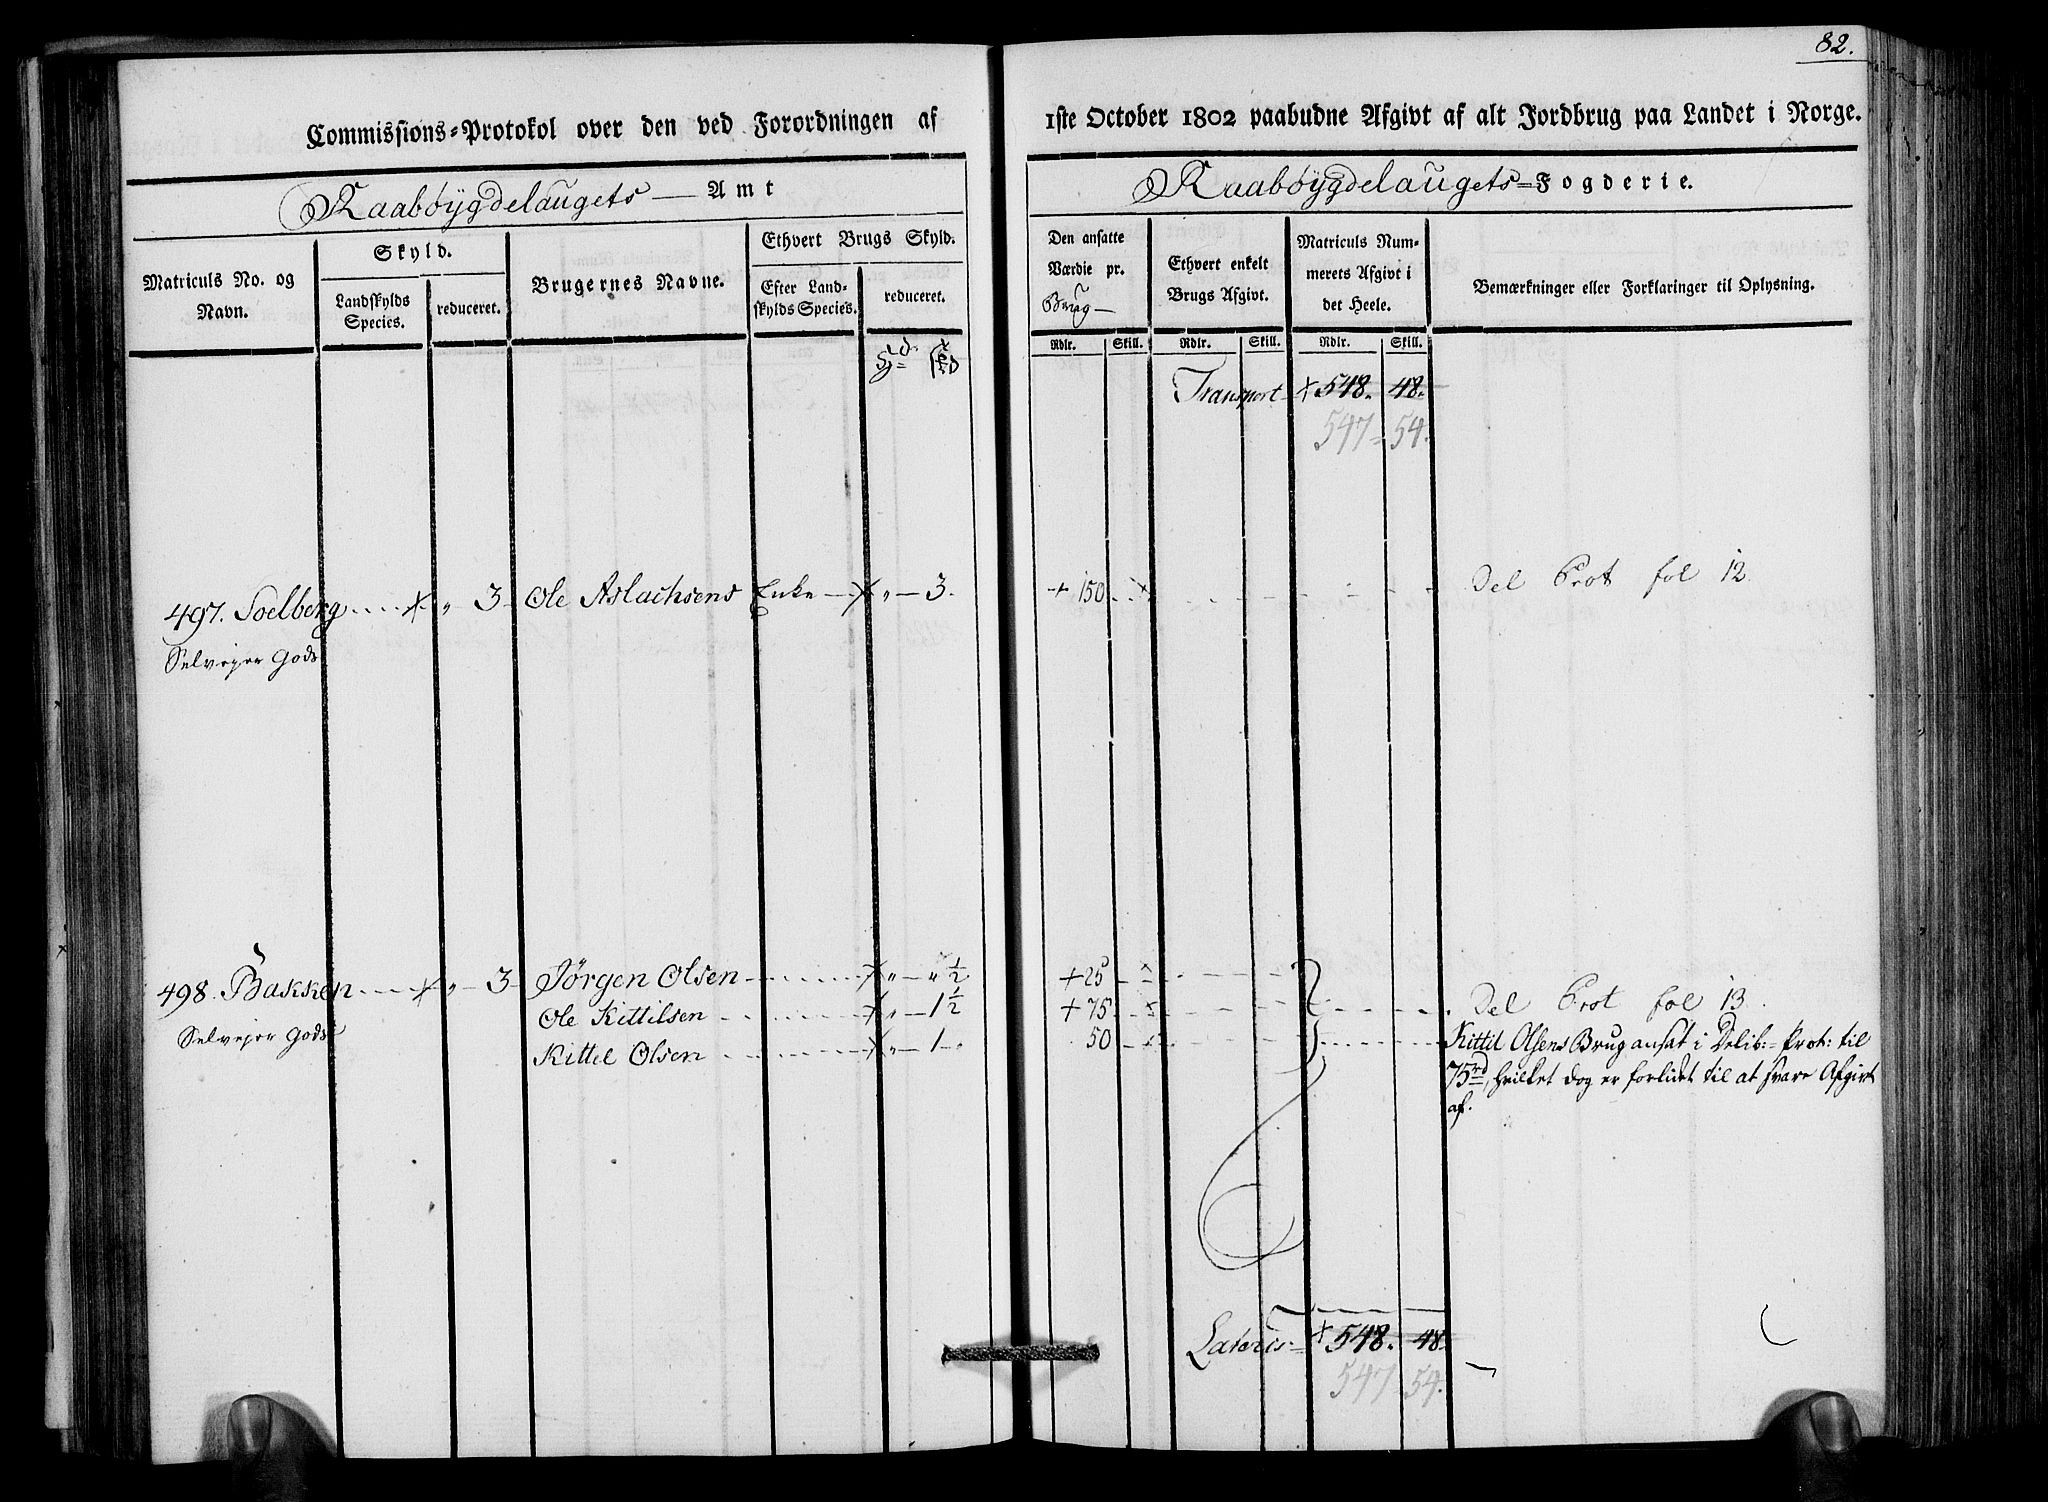 82.
Commissions-Protokol over den ved Forordningen af
1ste October 1802 paabudne Afgivt af alt Jordbrug paa Landet i Norge.
Raabøygdelaugets — Amt
Raabøygdelaugets = Fogderie.
Matriculs No. og Navn.
Skyld.
Landskylds Species.
reduceret.
Brugernes Navne.
Ethvert Brugs Skyld.
Efter Landskylds Species.
reduceret.
Den ansatte Værdie pr. Brug —
Ethvert enkelt Brugs Afgivt.
Matriculs Nummerets Afgivt i det Heele.
Bemærkninger eller Forklaringer til Oplysning.
Rdlr. Skill. Rdlr. Skill. Rdlr. Skill.
Transport × 548. 48.
547 = 54.
497. Soelberg × „ 3 Ole Aslachsens Enke × „ — 3. + 150 × Del Prot fol 12
Selvejer Gods
498. Bakken × „ 3 Jørgen Olsen × „ — „ ½ + 25 ×
Ole Kittilsen × „ — 1 ½ + 75 × Del Prot fol 13.
Selvejer Gods
Kittel Olsen × „ — 1 50 Kittil Olsens Brug ansat i Delib:= Prot: til
75 rd, hvilket dog er forlidet til at svare Afgivt
af.
Lateris = × 548. 48.
547 54.